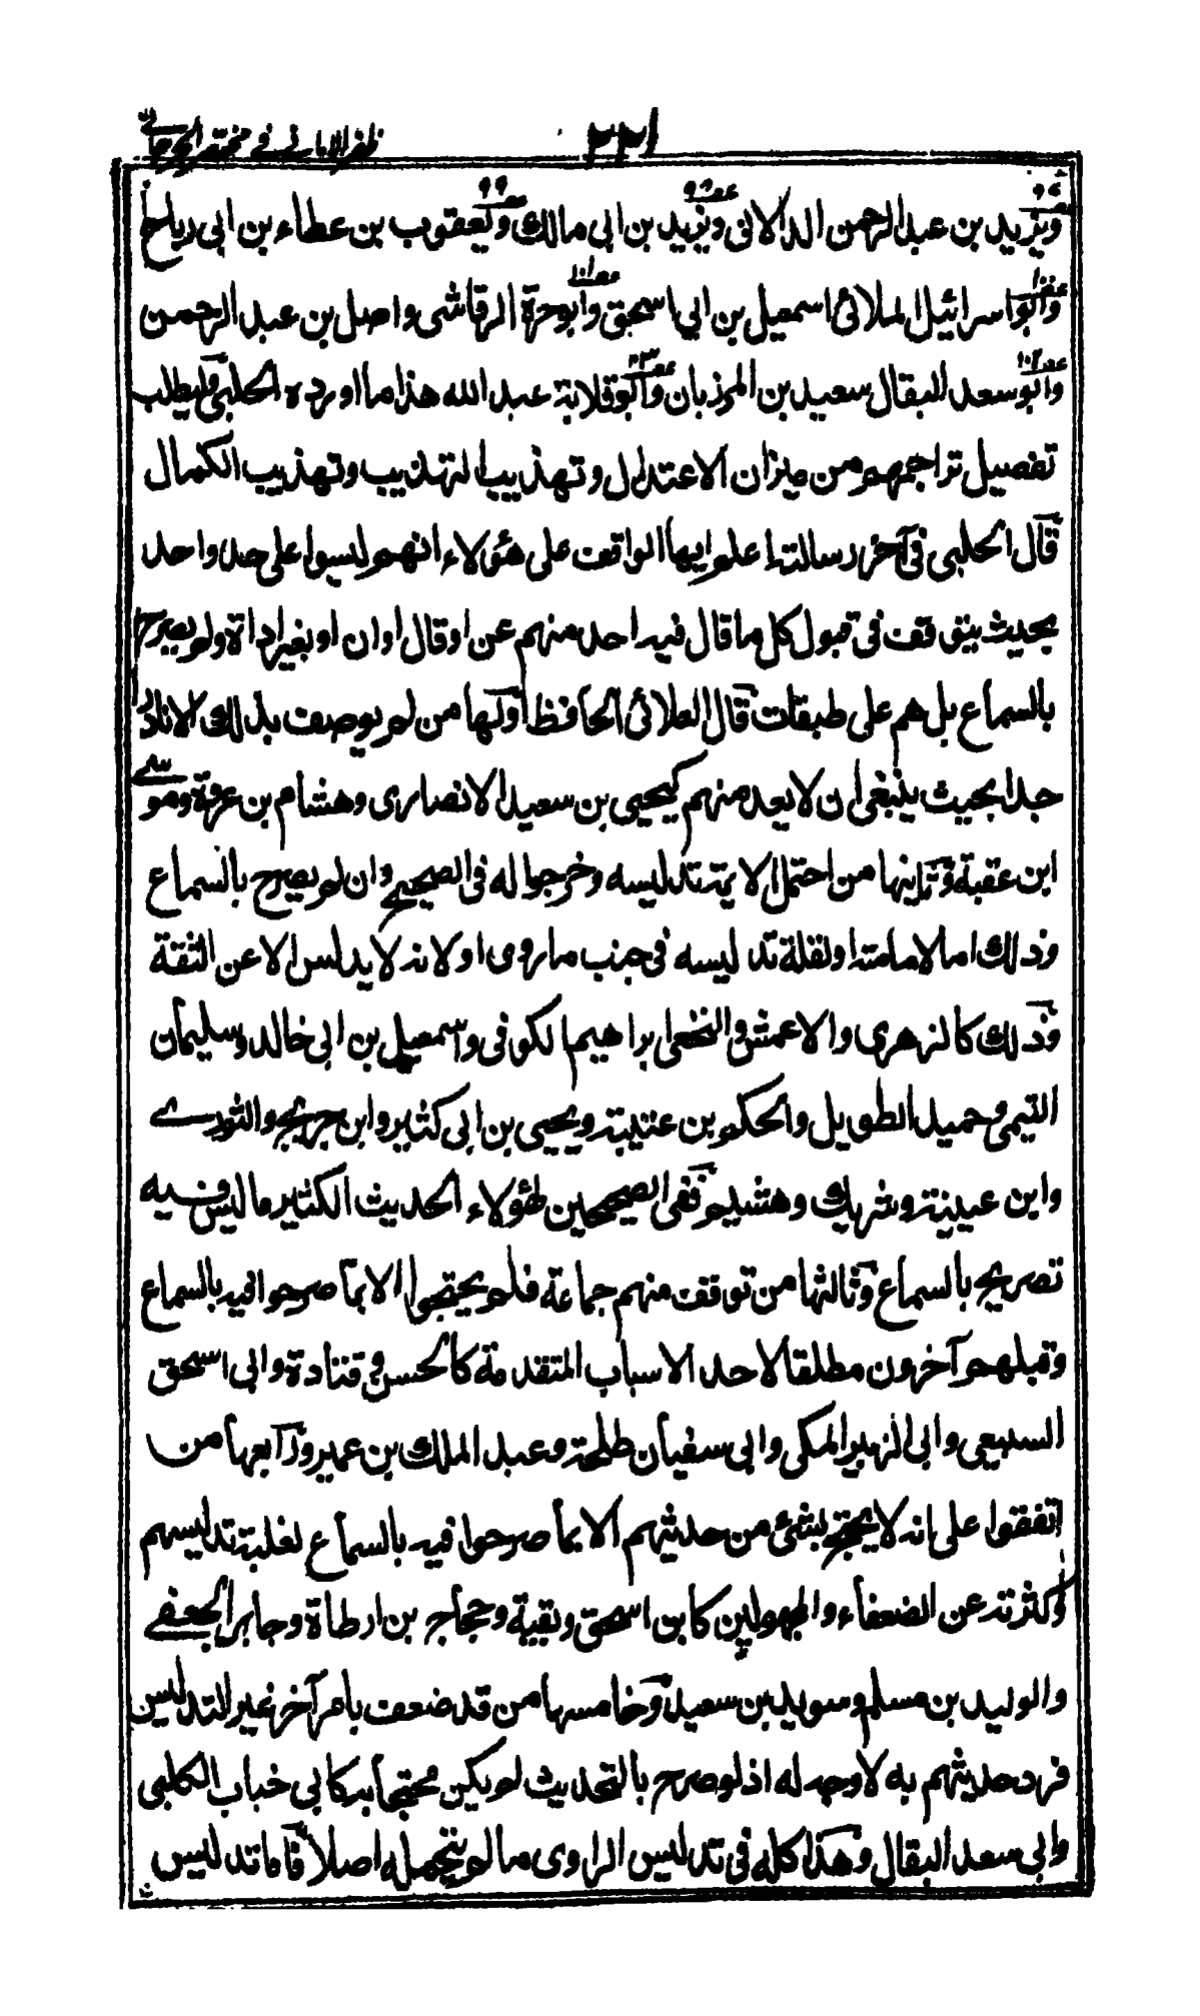 ٢٢١ ظفر الاماني في مختصر الجرجاني
ويزيد بن عبد الرحمن الدالاني ويزيد بن ابي مالك ويعقوب بن عطاء بن ابي رباح
وابو اسرائيل الملائى اسمعيل بن ابي اسحق وابو حرة الرقاشى واصل بن عبد الرحمن
وابو سعد البقال سعيد بن المرزبان وابو قلابة عبد الله هذا ما اورده الحلبي وليطلب
تفصيل تراجمهم من ميزان الاعتدال وتهذيب التهذيب وتهذيب الكمال
قال الحلبي في آخر رسالته اعلم ايها الواقف على هؤلاء انهم ليسوا على حد واحد
بحيث يتوقف في قبول كل ما قال فيه احد منهم عن او قال او ان او بغير اداة ولم يصرح
بالسماع بل هم على طبقات قال العلائى الحافظ اولها من لم يوصف بذلك الا نادرا
جدا بحيث ينبغي ان لا يعد منهم كيحيى بن سعيد الانصارى وهشام بن عروة وموسى
ابن عقبة وثانيها من احتمل الائمة تدليسه وخرجوا له في الصحيح وان لم يصرح بالسماع
وذلك اما لامامته او لقلة تدليسه في جنب ما روى او لانه لا يدلس الا عن الثقة
وذلك كالزهرى والاعمش والنخعى ابراهيم الكوفى واسمعيل بن ابي خالد وسليمان
التيمى وحميد الطويل والحكم بن عتيبة ويحيى بن ابي كثير وابن جريج والثورى
وابن عيينة وشريك وهشيم ففى الصحيحين لهؤلاء الحديث الكثير ما ليس فيه
تصريح بالسماع وثالثها من توقف منهم جماعة فلم يحتجوا الا بما صرحوا فيه بالسماع
وقبلهم آخرون مطلقا لاحد الاسباب المتقدمة كالحسن وقتادة وابي اسحق
السبيعى وابي الزبير المكى وابي سفيان طلحة وعبد الملك بن عمير ورابعها من
اتفقوا على انه لا يحتج بشئ من حديثهم الا بما صرحوا فيه بالسماع لغلبة تدليسهم
وكثرته عن الضعفاء والمجهولين كابن اسحق وبقية وحجاج بن ارطاة وجابر الجعفى
والوليد بن مسلم وسويد بن سعيد وخامسها من قد ضعف بامر آخر غير التدليس
فرد حديثهم به لا وجه له اذ لو صرح بالتحديث لم يكن محتجا به كابي خباب الكلبى
وابي سعد البقال وهذا كله في تدليس الراوى ما لم يتحمله اصلا فاما تدليس